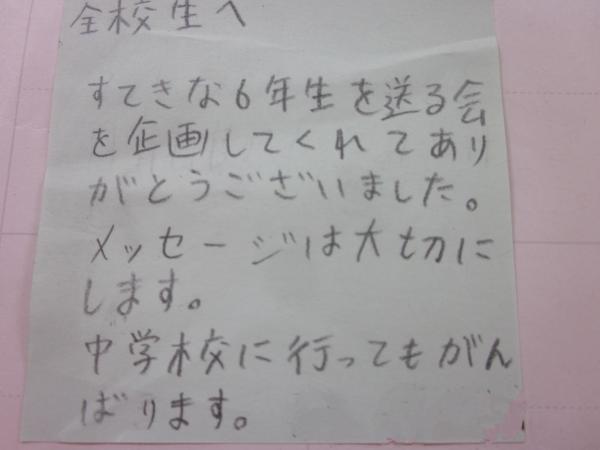 全校生へ
すてきな6年生を送る会
を企画してくれてあり
がとうございました。
メッセージは大切に
します。
中学校に行ってもがん
ばります。